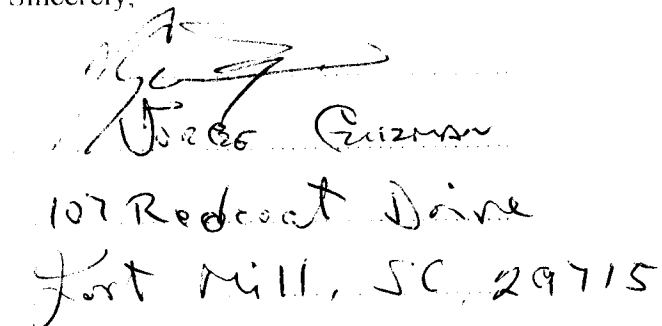 Sincerely,
Jorge Guzman
107 Redcoat Drive
Fort Mill, SC 29715